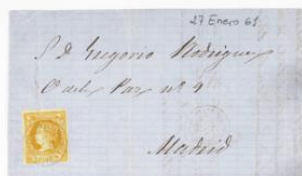 27 Enero 61
S. D. Gregorio Rodriguez
Cᵉ de la Paz nº 9
Madrid